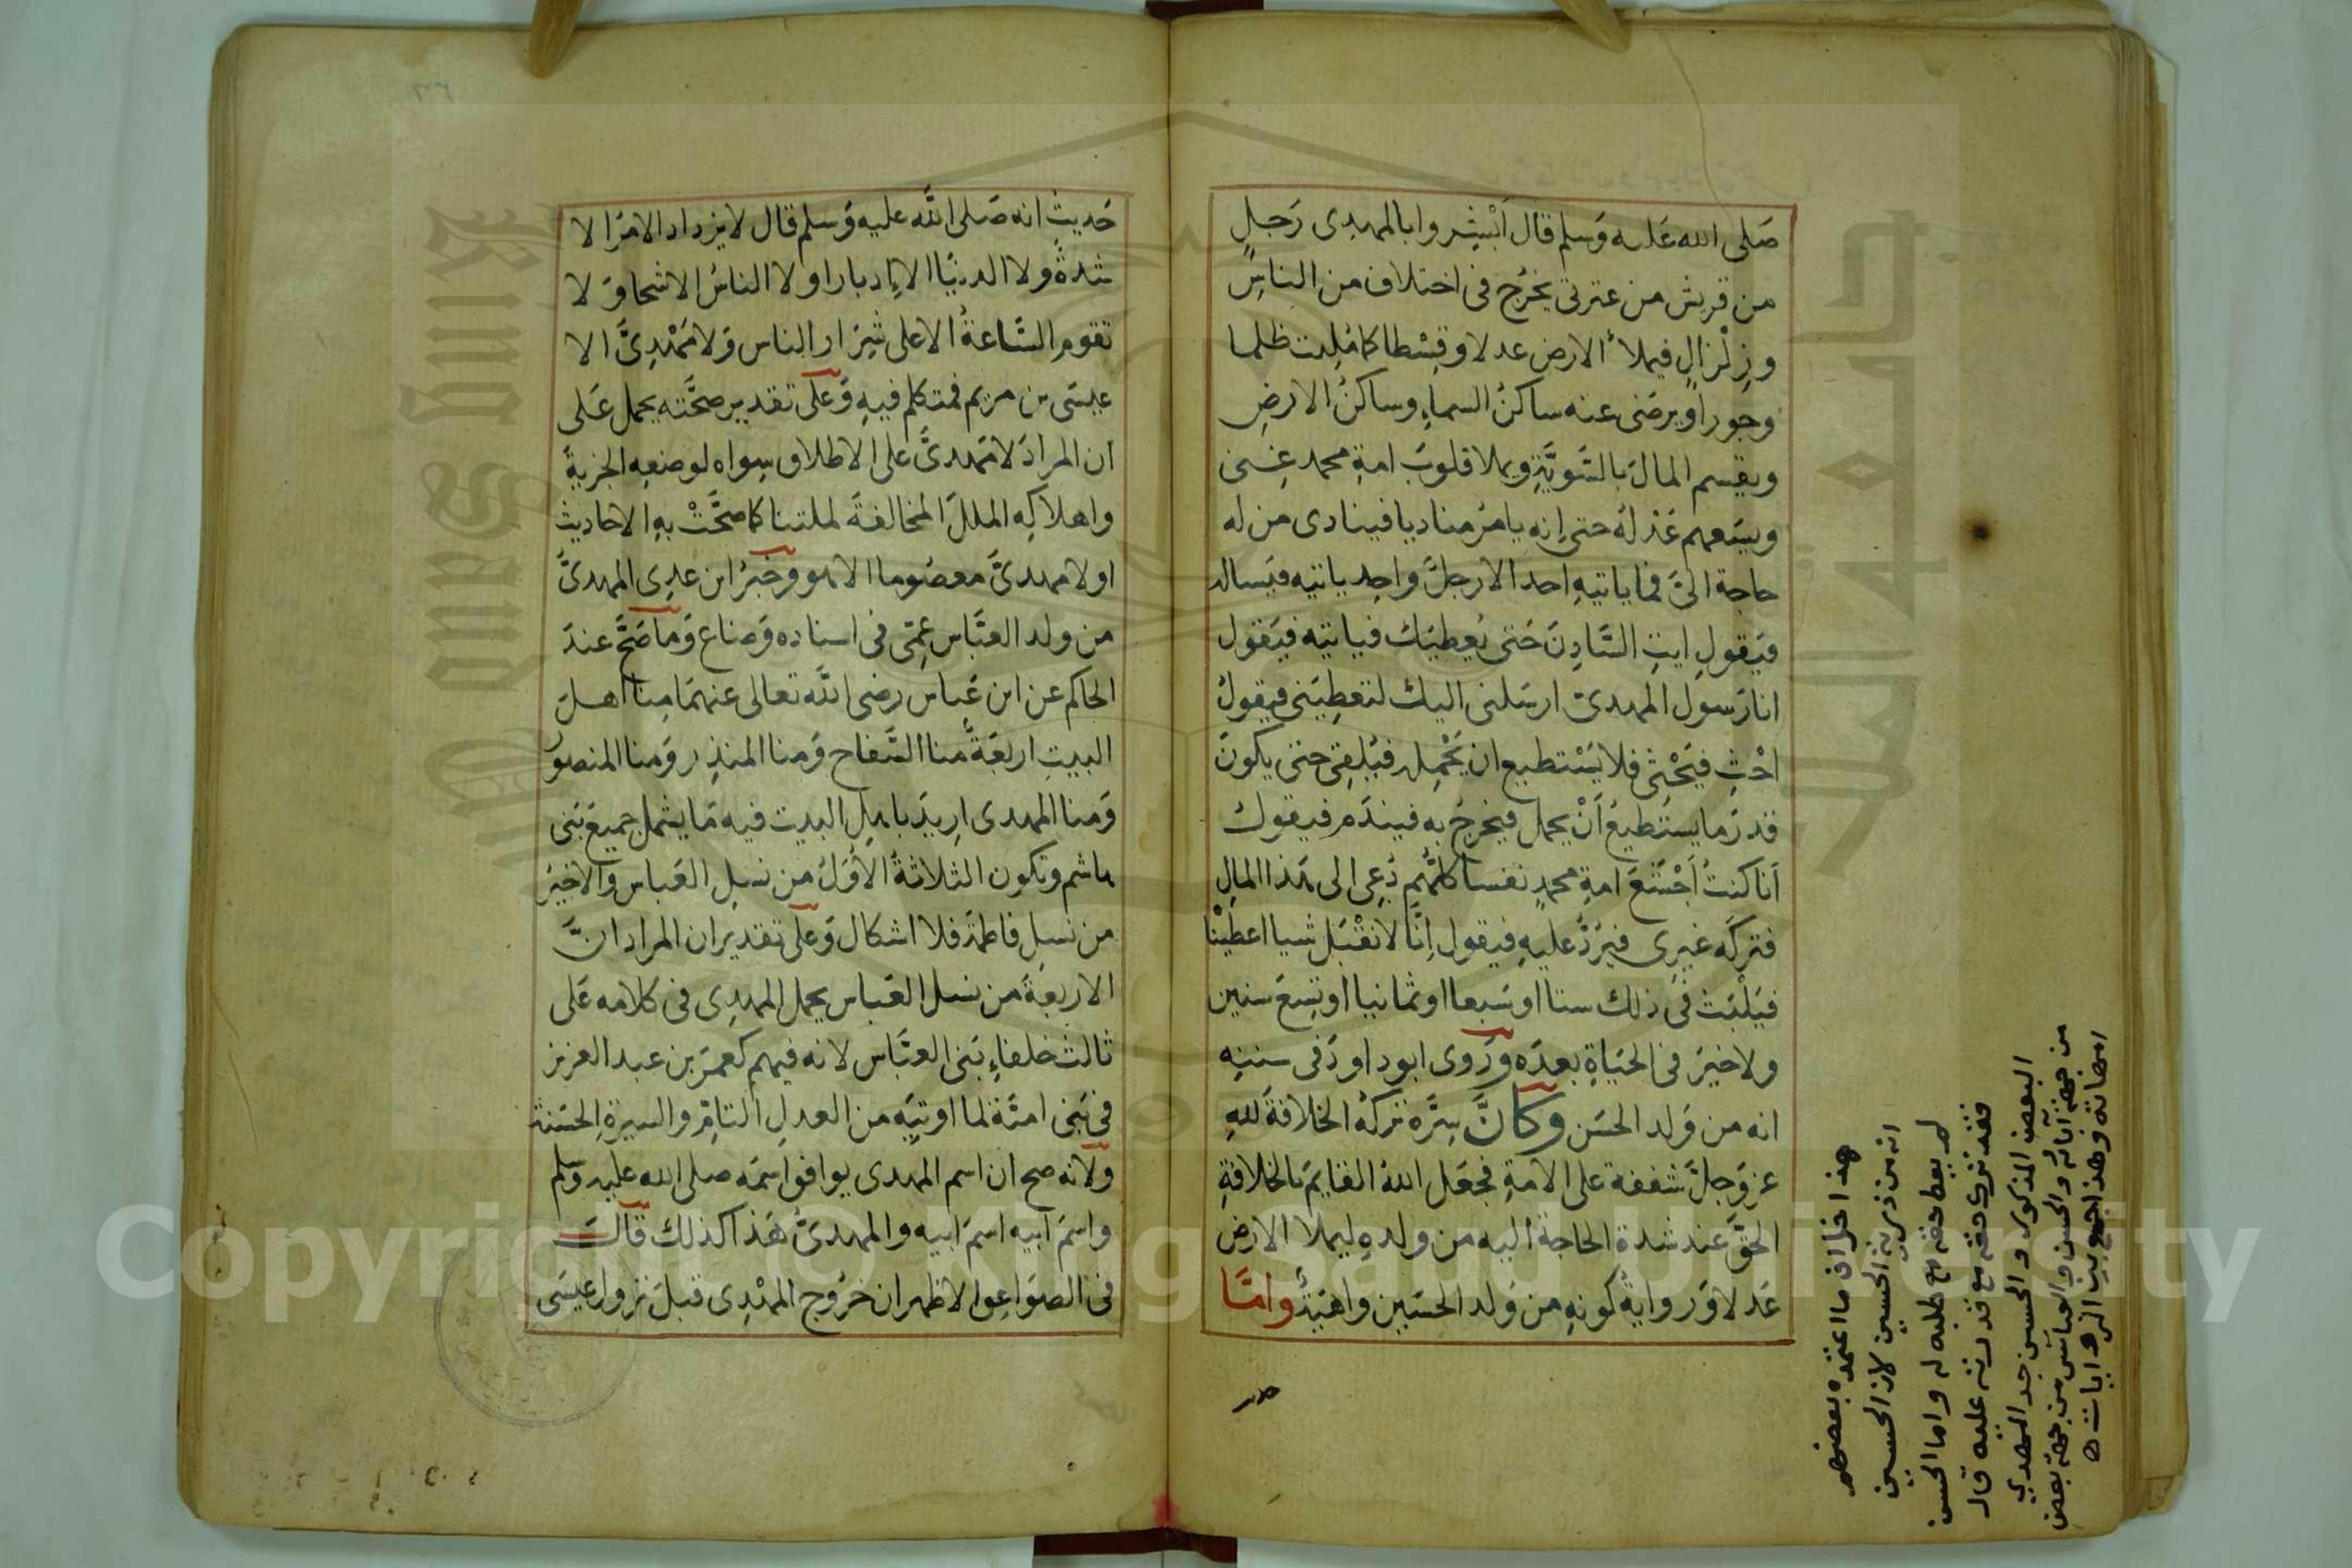 صَلى الله عَليه وَسلم قال اَبْشِروا بالمهدى رَجلٍ
من قريش من عترتى يخرُج فى اختلاف من الناسِ
وزِلْزالٍ فيملأُ الارض عدلا وقِسْطا كما مُلِئت ظلما
وجورا ويرضى عنه ساكنُ السماءِ وساكنُ الارضِ
ويقسم المالَ بالسَّوِيَّةِ ويملا قلوبَ امةِ محمد غِنى
ويسَعهم عَدْلهُ حتى إنه يامرُ مناديا فينادى من له
حاجة الىَّ فما ياتيهِ احد الارجلٌ واحِد ياتيه فيَساله
فيَقول ايتِ السَّادِنَ حَتى يُعطيَك فياتيه فيَقول
انا رَسول المهدىّ ارسَلنى اليك لتعطِيَنى فيقولُ
احْثِ فيَحْثى فلا يَسْتطيع ان يَحْمِله فيُلقِى حتى يكونَ
قدرَ ما يستَطيعُ اَنْ يحمل فيخرجُ به فيندَم فيقول
اَنا كنتُ اَجْشَعَ امةِ محمدٍ نفسا كلُّهُم دُعِى الى هَذا المالِ
فتركَه غيرِى فيَرُدُّ عليهِ فيقول اِنَّا لا نَقْبَل شيا اعطَيْنا
فيَلْبَث فى ذلك ستا او سَبعا او ثمانيا او تِسعَ سنين
ولا خيرَ فى الحيَاةِ بعدَه ورَوى ابو داودَ فى سننِهِ
انه من وَلد الحسَن وكانَّ سِرَّه تركهُ الخلافةَ للهِ
عز وَجلَّ شفقة على الامةِ فجعَل اللهُ القايمَ بالخلافةِ
الحقَّ عند شدة الحاجة اليه من ولدهِ ليملا الارض
عَدلا وَرواية كونهِ من وَلد الحسَين واهيَةٌ وامَّا
هذا خلاف ما اعتمده بعضهم
انه من ذرية الحسين لان الحسين
لم يعط حقه مع طلبه له واما الحسن
فقد ترك حقه مع قدرته عليه قال
البعض المذكور والحسين جد المهدي
من جهة آبائه والحسن والعباس من جهة بعض
امهاته وهذا جمع بين الروايات ه
حَديثِ انه صَلى الله عليه وَسلم قال لا يزداد الامرُ الا
شدةً ولا الدنيُا الا إدبارا ولا الناسُ الا شحا وَلا
تقوم السَّاعةُ الا على شِرَارِ الناس وَلا مَهْدِىَّ الا
عيسَى بن مريم فمتكلم فيهِ وَعلى تقدير صحَّته يحمل عَلى
ان المرادَ لا مَهدىَّ على الاطلاق سِواه لوضعِه الجزيةَ
واهلاكِه المللَ المخالفةَ لملتنا كما صحَّتْ بهِ الاحاديث
او لا مهدىَّ معصُوما الا هو وخبرُ ابن عدِى المهدىُّ
من ولد العبَّاس عمِّى فى اسناده وَضاع وَما صَحَّ عندَ
الحاكم عن ابن عَباس رضى الله تعالى عنهمَا مِنا اهـلَ
البيتِ اربَعَةٌ منا السَّفاح وَمنا المنذِر وَمنا المنصور
وَمنا المهدى اريدَ باهلِ البيت فيه مَا يشمل جميعَ بَنى
هاشم وتكون الثلاثةُ الاُوَلُ من نسلِ العَباس وَالاخيرُ
من نسلِ فاطمَة فلا اشكال وَعلى تقدير ان المراد انَّ
الاربعَةَ من نسل العَباس يحمل المهدِى فى كلامه عَلى
ثالث خلفاءِ بَنى العبَّاس لانه فيهم كعمرَ بن عبد العزيز
فى بَنى اميَّة لما اوتيَه من العدلِ التامِّ والسيرةِ الحسَنة
ولانه صح ان اسم المهدى يوافق اسمَه صلى الله عليه وسلم
واسمَ ابيه اسمَ ابيه والمهدىُّ هَذا كذلك قالَ
فى الصوَاعِق الاظهر ان خرُوج المهْدِى قبلَ نزول عيسَى
Copyright © King Saud University